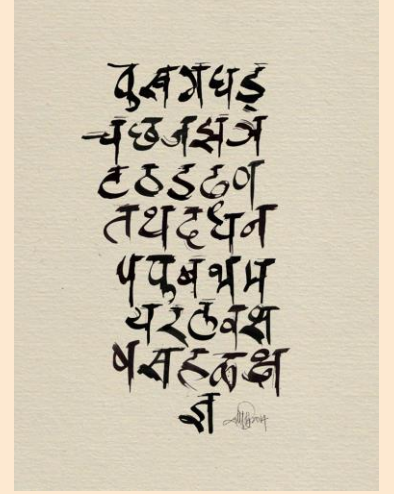 क ख ग घ ङ
च छ ज झ ञ
ट ठ ड ढ ण
त थ द ध न
प फ ब भ म
य र ल व श
ष स ह ळ क्ष
ज्ञ
2014